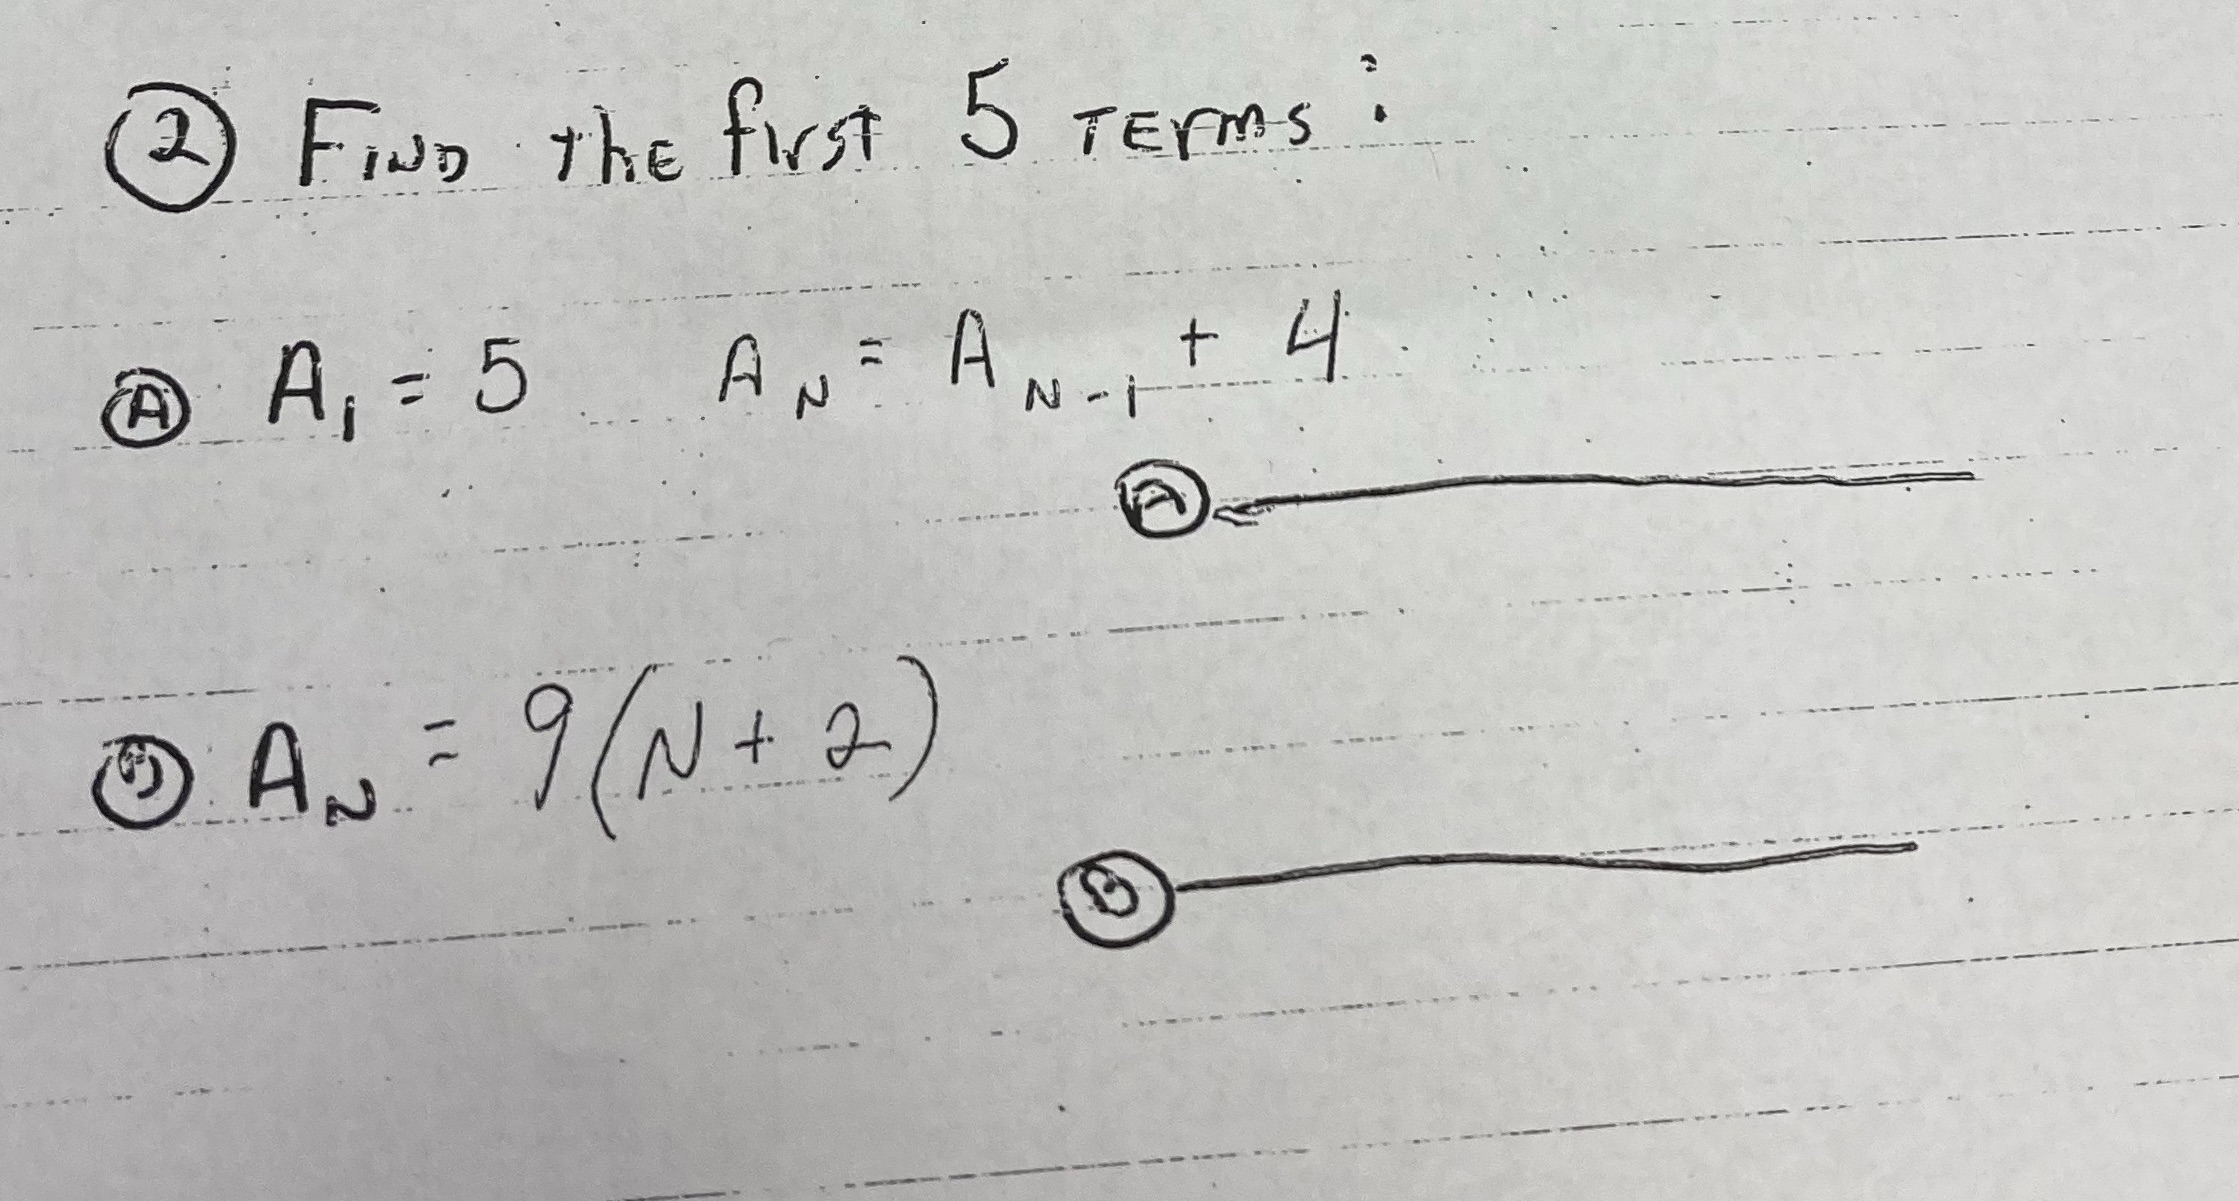 ② Find the first 5 terms:
Ⓐ A₁ = 5 Aₙ = Aₙ₋₁ + 4
Ⓐ
Ⓑ Aₙ = 9(N + 2)
Ⓑ